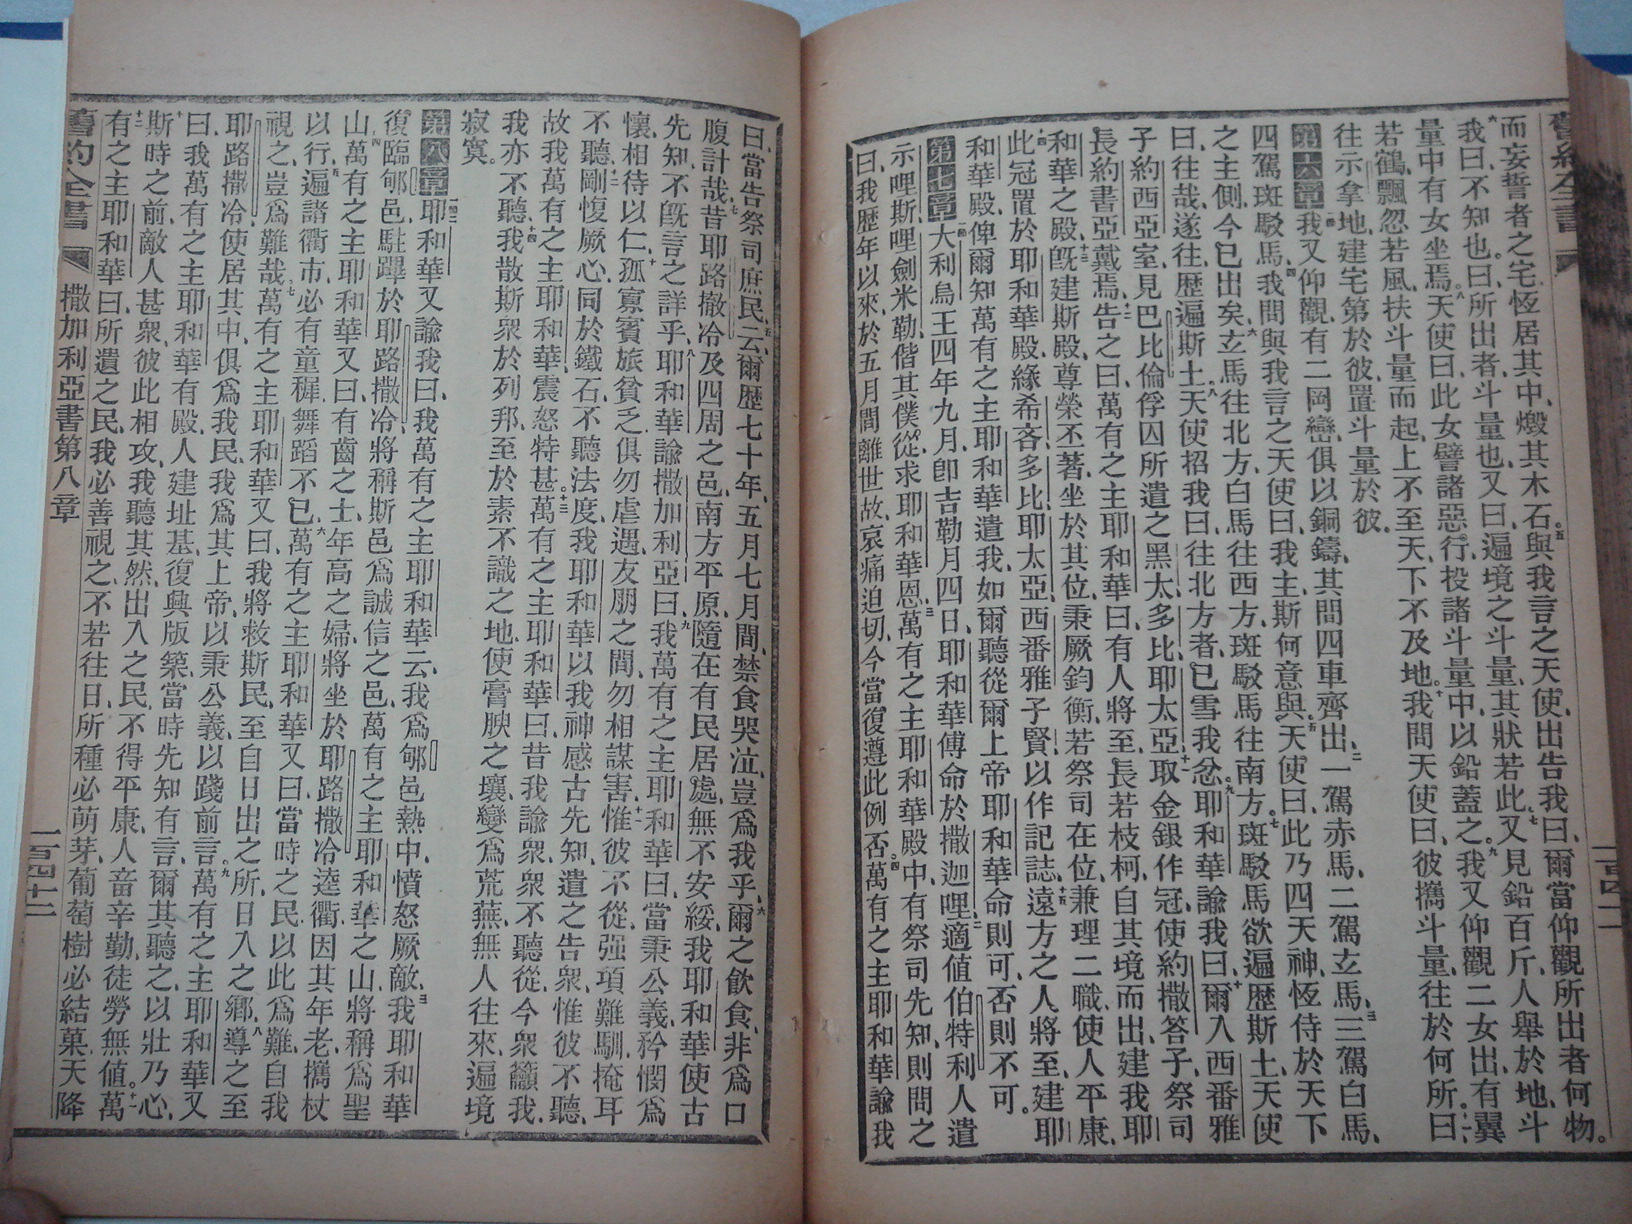 舊約全書
一百四十二
而妄誓者之宅恆居其中燬其木石五與我言之天使出告我曰爾當仰觀所出者何物
六我曰不知也曰所出者斗量也又曰遍境之斗量其狀若此七又見鉛百斤人舉於地斗
量中有女坐焉八天使曰此女譬諸惡行投諸斗量中以鉛蓋之九我又仰觀二女出有翼
若鶴飄忽若風扶斗量而起上不至天下不及地十我問天使曰彼攜斗量往於何所十一曰
往示拿地建宅第於彼置斗量於彼
第六章一我又仰觀有二岡巒俱以銅鑄其間四車齊出二一駕赤馬二駕玄馬三三駕白馬
四駕斑駁馬四我問與我言之天使曰我主斯何意與五天使曰此乃四天神恆侍於天下
之主側今已出矣六玄馬往北方白馬往西方斑駁馬往南方七斑駁馬欲遍歷斯土天使
曰往哉遂往歷遍斯土八天使招我曰往北方者已雪我忿九耶和華諭我曰十爾入西番雅
子約西亞室見巴比倫俘囚所遺之黑太多比耶太亞十一取金銀作冠使約撒答子祭司
長約書亞戴焉十二告之曰萬有之主耶和華曰有人將至長若枝柯自其境而出建我耶
和華之殿十三旣建斯殿尊榮丕著坐於其位秉厥鈞衡若祭司在位兼理二職使人平康
十四此冠置於耶和華殿緣希吝多比耶太亞西番雅子賢以作記誌十五遠方之人將至建耶
和華殿俾爾知萬有之主耶和華遣我如爾聽從爾上帝耶和華命則可否則不可
第七章一大利烏王四年九月卽吉勒月四日耶和華傅命於撒迦哩二適値伯特利人遣
示哩斯哩劍米勒偕其僕從求耶和華恩三萬有之主耶和華殿中有祭司先知則問之
曰我歷年以來於五月間離世故哀痛迫切今當復遵此例否四萬有之主耶和華諭我
曰當告祭司庶民云五爾歷七十年五月七月間禁食哭泣豈爲我乎六爾之飲食非爲口
腹計哉七昔耶路撒冷及四周之邑南方平原隨在有民居處無不安綏我耶和華使古
先知不旣言之詳乎八耶和華諭撒加利亞曰九我萬有之主耶和華曰當秉公義矜憫爲
懷相待以仁十孤寡賓旅貧乏俱勿虐遇友朋之間勿相謀害十一惟彼不從强項難馴掩耳
不聽十二剛愎厥心同於鐵石不聽法度我耶和華以我神感古先知遣之告衆惟彼不聽
故我萬有之主耶和華震怒特甚十三萬有之主耶和華曰昔我諭衆衆不聽從今衆籲我
我亦不聽十四我散斯衆於列邦至於素不識之地使膏腴之壤變爲荒蕪無人往來遍境
寂寞
第八章一耶和華又諭我曰二我萬有之主耶和華云我爲郇邑熱中憤怒厥敵三我耶和華
復臨郇邑駐蹕於耶路撒冷將稱斯邑爲誠信之邑萬有之主耶和華之山將稱爲聖
山四萬有之主耶和華又曰有齒之士年高之婦將坐於耶路撒冷逵衢因其年老攜杖
以行五遍諸衢市必有童穉舞蹈不已六萬有之主耶和華又曰當時之民以此爲難自我
視之豈爲難哉七萬有之主耶和華又曰我將救斯民至自日出之所日入之鄉八導之至
耶路撒冷使居其中俱爲我民我爲其上帝以秉公義以踐前言九萬有之主耶和華又
曰我萬有之主耶和華有殿人建址基復興版築當時先知有言爾其聽之以壯乃心
十斯時之前敵人甚衆彼此相攻我聽其然出入之民不得平康人畜辛勤徒勞無値十一萬
有之主耶和華曰所遺之民我必善視之不若往日十二所種必萌芽葡萄樹必結菓天降
舊約全書 撒加利亞書第八章 一百四十二